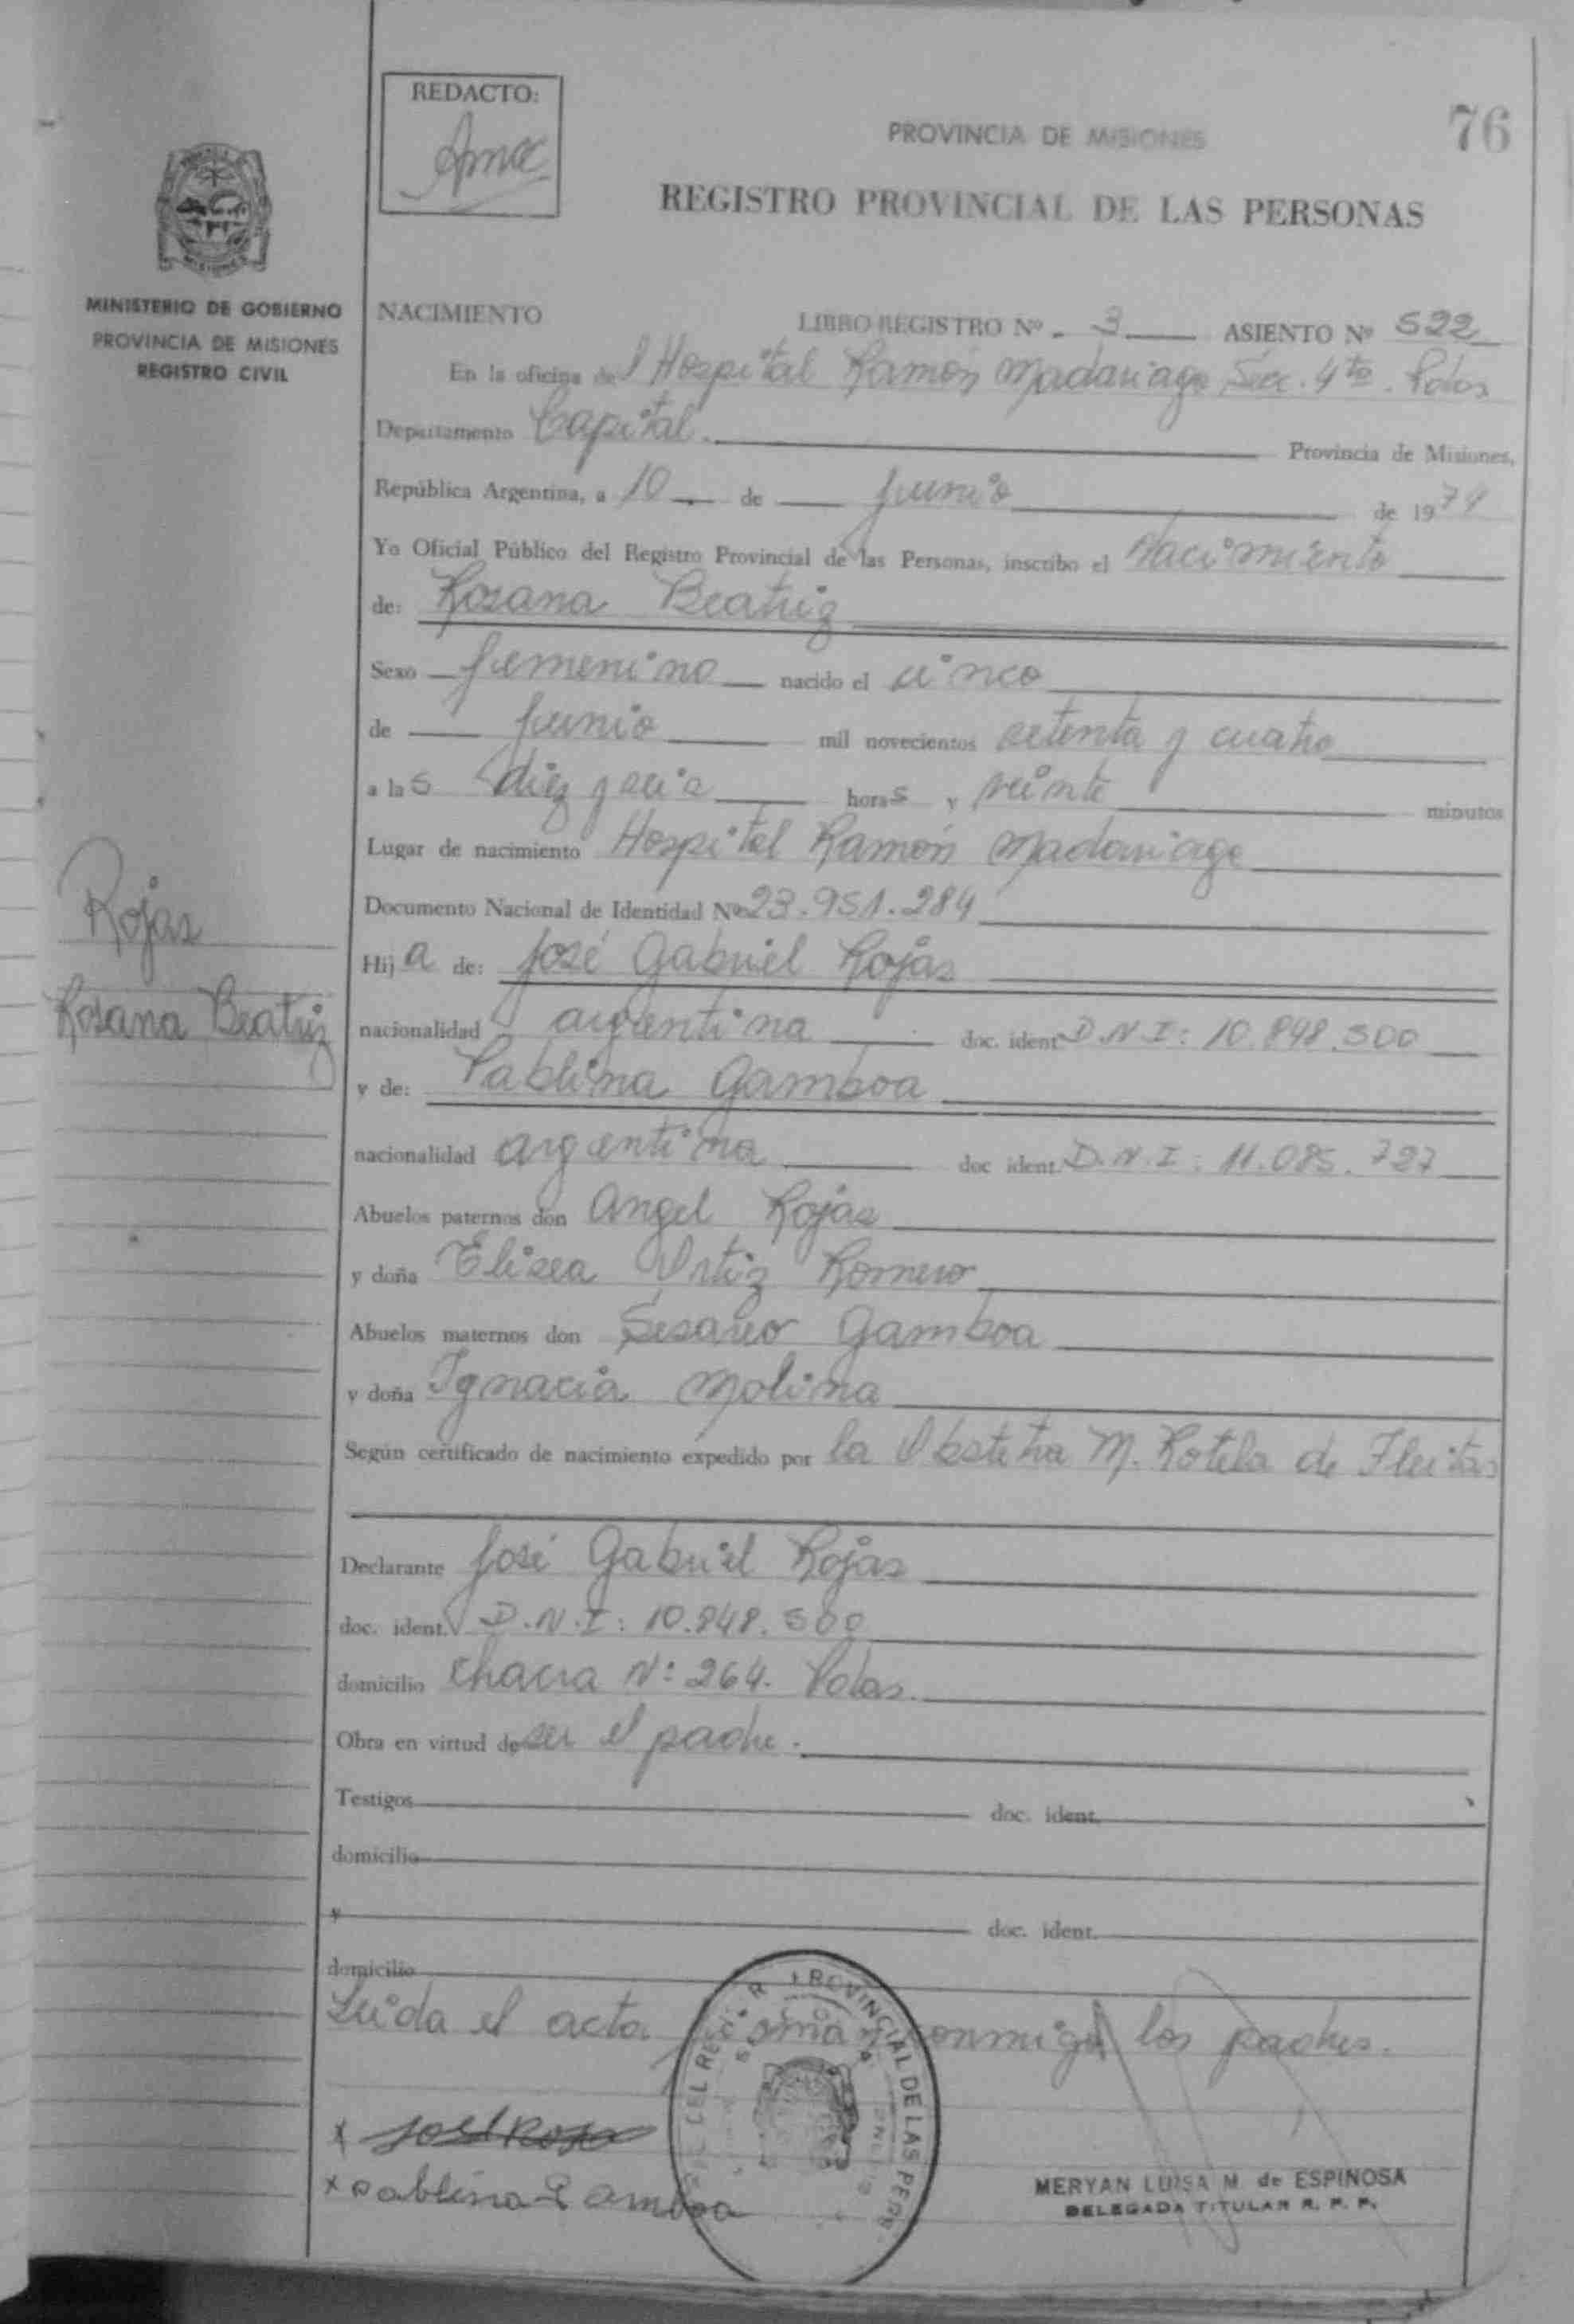 REDACTO:
76
PROVINCIA DE MISIONES
REGISTRO PROVINCIAL DE LAS PERSONAS
MINISTERIO DE GOBIERNO
PROVINCIA DE MISIONES
REGISTRO CIVIL
NACIMIENTO
LIBRO REGISTRO Nº - 3 ASIENTO Nº 522
En la oficina del Hospital Ramón Madariaga Sec. 4ta. Pdas
Departamento Capital. Provincia de Misiones,
República Argentina, a 10 de Junio de 1974
Yo Oficial Público del Registro Provincial de las Personas, inscribo el Nacimiento
de: Rosana Beatriz
Sexo femenino nacido el cinco
de Junio mil novecientos setenta y cuatro
a las diez y seis horas y veinte minutos
Lugar de nacimiento Hospital Ramón Madariaga
Documento Nacional de Identidad Nº 23.951.284
Hija de: José Gabriel Rojas
Rojas
Rosana Beatriz
nacionalidad argentina doc. ident D.N.I: 10.848.500
y de: Pablina Gamboa
nacionalidad argentina doc ident D.N.I: 11.085.727
Abuelos paternos don Angel Rojas
y doña Elisea Ortiz Romero
Abuelos maternos don Sesareo Gamboa
y doña Ignacia Molina
Según certificado de nacimiento expedido por la Obstetra M. Rotela de Fleitas
Declarante José Gabriel Rojas
doc. ident. D.N.I: 10.848.500
domicilio Chacra Nº: 264. Pdas.
Obra en virtud de ser el padre.
Testigos doc. ident.
domicilio
y doc. ident.
domicilio
Leida el acta firman conmigo los padres.
x José Rojas
x pablina Gamboa
MERYAN LUISA M. de ESPINOSA
DELEGADA TITULAR R. P. P.